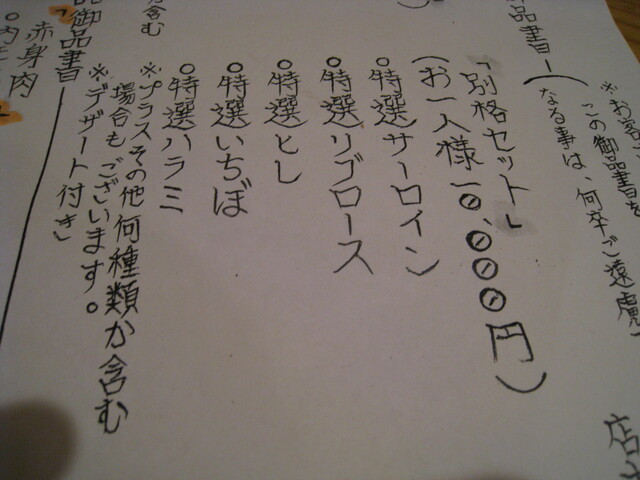 ※お客
この御品書を
なる事は、何卒ご遠慮
店
品書ー
「別格セット」
(お一人様一0、000円)
○特選サーロイン
○特選リブロース
○特選ヒレ
○特選いちぼ
○特選ハラミ
※プラスその他何種類か含む
場合もございます。
※デザート付き
か含む
御品書ー
○赤身肉